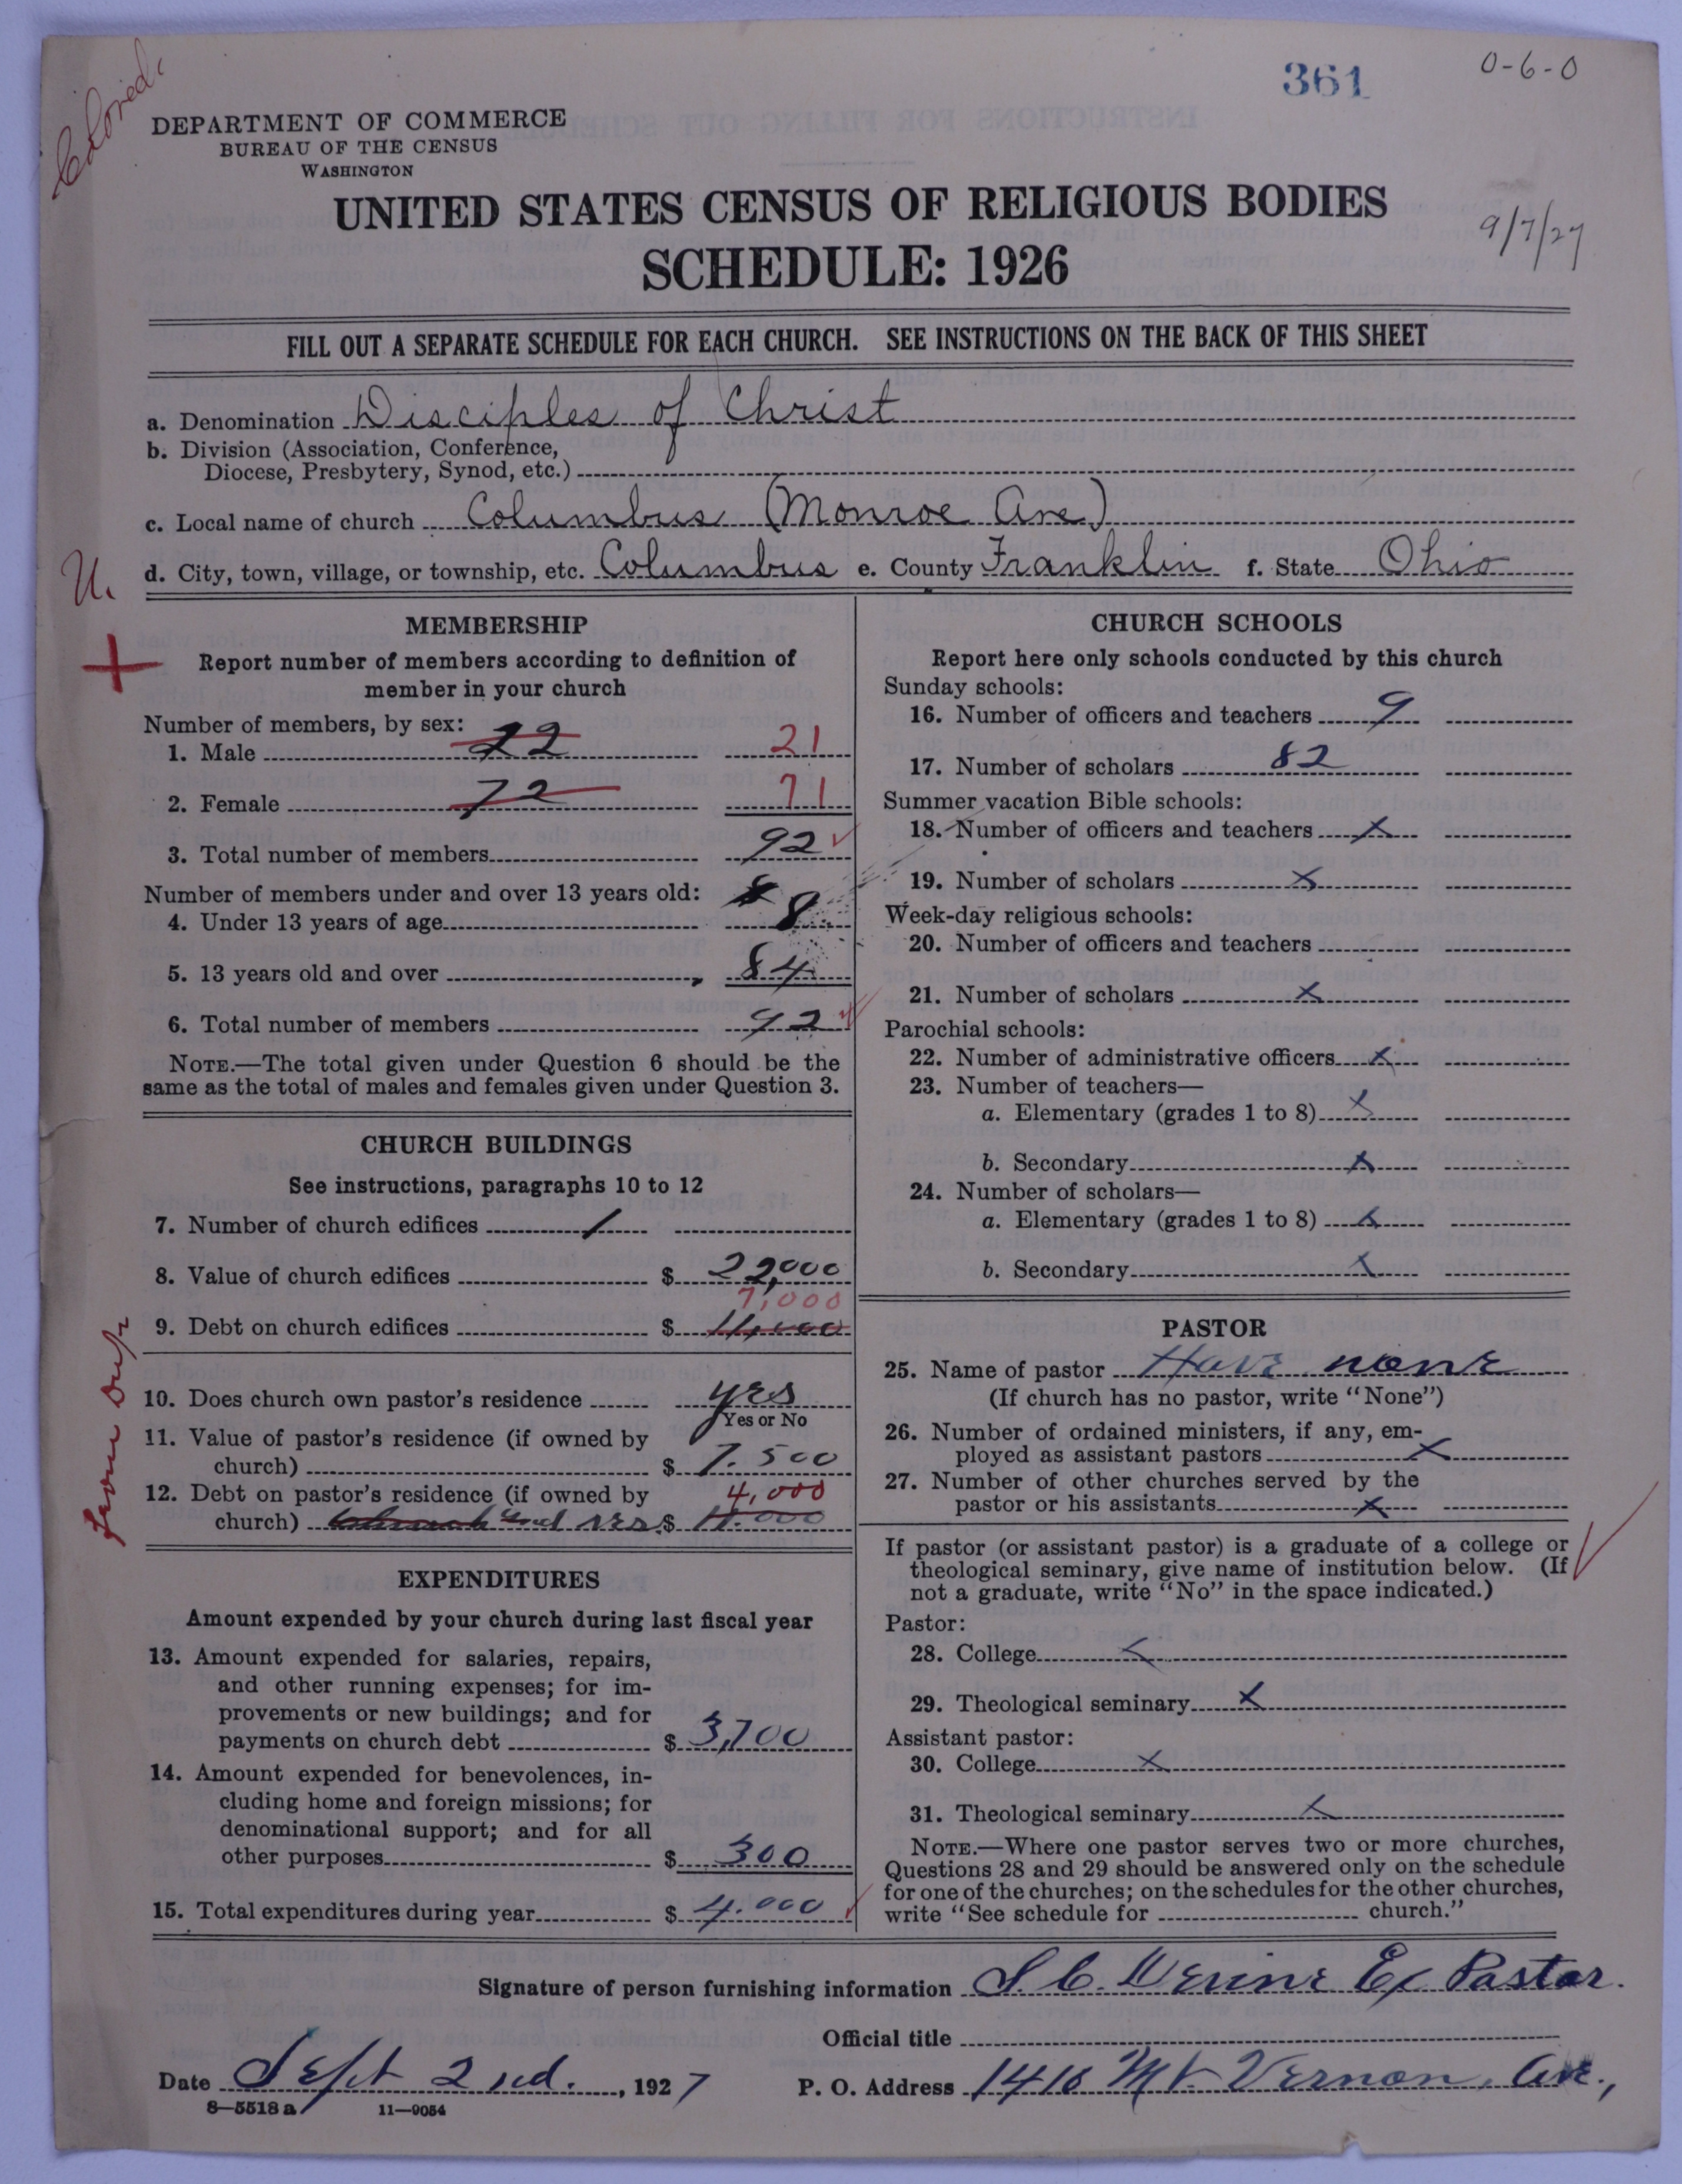 Colored.
361
0-6-0
DEPARTMENT OF COMMERCE
BUREAU OF THE CENSUS
WASHINGTON
UNITED STATES CENSUS OF RELIGIOUS BODIES
SCHEDULE: 1926
9/7/27
FILL OUT A SEPARATE SCHEDULE FOR EACH CHURCH. SEE INSTRUCTIONS ON THE BACK OF THIS SHEET
a. Denomination Disciples of Christ
b. Division (Association, Conference,
Diocese, Presbytery, Synod, etc.)
c. Local name of church Columbus (Monroe Ave)
U.
d. City, town, village, or township, etc. Columbus e. County Franklin f. State Ohio
MEMBERSHIP
+ Report number of members according to definition of
member in your church
Number of members, by sex:
1. Male 22 21
2. Female 72 71
3. Total number of members 92 ✓
Number of members under and over 13 years old:
4. Under 13 years of age 8
5. 13 years old and over 84
6. Total number of members 92 ✓
NOTE.—The total given under Question 6 should be the
same as the total of males and females given under Question 3.
CHURCH BUILDINGS
See instructions, paragraphs 10 to 12
7. Number of church edifices 1
8. Value of church edifices $ 22,000
7,000
9. Debt on church edifices $ 11,000
10. Does church own pastor's residence yes
Yes or No
11. Value of pastor's residence (if owned by
church) $ 7.500
12. Debt on pastor's residence (if owned by 4,000
church) Church and res $ 11.000
from dup
EXPENDITURES
Amount expended by your church during last fiscal year
13. Amount expended for salaries, repairs,
and other running expenses; for im-
provements or new buildings; and for
payments on church debt $ 3,700
14. Amount expended for benevolences, in-
cluding home and foreign missions; for
denominational support; and for all
other purposes $ 300
15. Total expenditures during year $ 4.000 ✓
CHURCH SCHOOLS
Report here only schools conducted by this church
Sunday schools:
16. Number of officers and teachers 9
17. Number of scholars 82
Summer vacation Bible schools:
18. Number of officers and teachers x
19. Number of scholars x
Week-day religious schools:
20. Number of officers and teachers
21. Number of scholars x
Parochial schools:
22. Number of administrative officers x
23. Number of teachers—
a. Elementary (grades 1 to 8) x
b. Secondary x
24. Number of scholars—
a. Elementary (grades 1 to 8) x
b. Secondary x
PASTOR
25. Name of pastor Have none
(If church has no pastor, write "None")
26. Number of ordained ministers, if any, em-
ployed as assistant pastors x
27. Number of other churches served by the
pastor or his assistants x
If pastor (or assistant pastor) is a graduate of a college or
theological seminary, give name of institution below. (If
not a graduate, write "No" in the space indicated.) ✓
Pastor:
28. College x
29. Theological seminary x
Assistant pastor:
30. College x
31. Theological seminary x
NOTE.—Where one pastor serves two or more churches,
Questions 28 and 29 should be answered only on the schedule
for one of the churches; on the schedules for the other churches,
write "See schedule for church."
Signature of person furnishing information S. C. Devine Ex Pastor.
Official title
Date Sept 2nd. , 1927 P. O. Address 1416 Mt Vernon, Ave.,
8—5518 a 11—9054